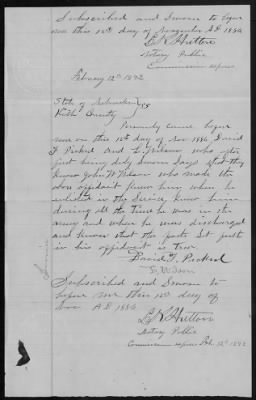 Subscribed and Sworn to before
me this 12th day of November AD 1886
L K Hutton
Notary Public
Commission expires
February 12th 1892
State of Nebraska
Keith County } SS
Personally came before
me on this 12th day of Nov 1886, David
F Pickrel and who after
first being duly Sworn Says that they
know John W Wilson who made the
above affidavit knew him when he
enlisted in the Service, knew him
during all the time he was in the
army and when he was discharged
and knows that the facts Set forth
in his affidavit is True
David F. Pickrel
Wilson
Subscribed and Sworn to
before me this 12th day of
Nov AD 1886
L K Hutton
Notary Public
Commission expires Feb. 12th 1892